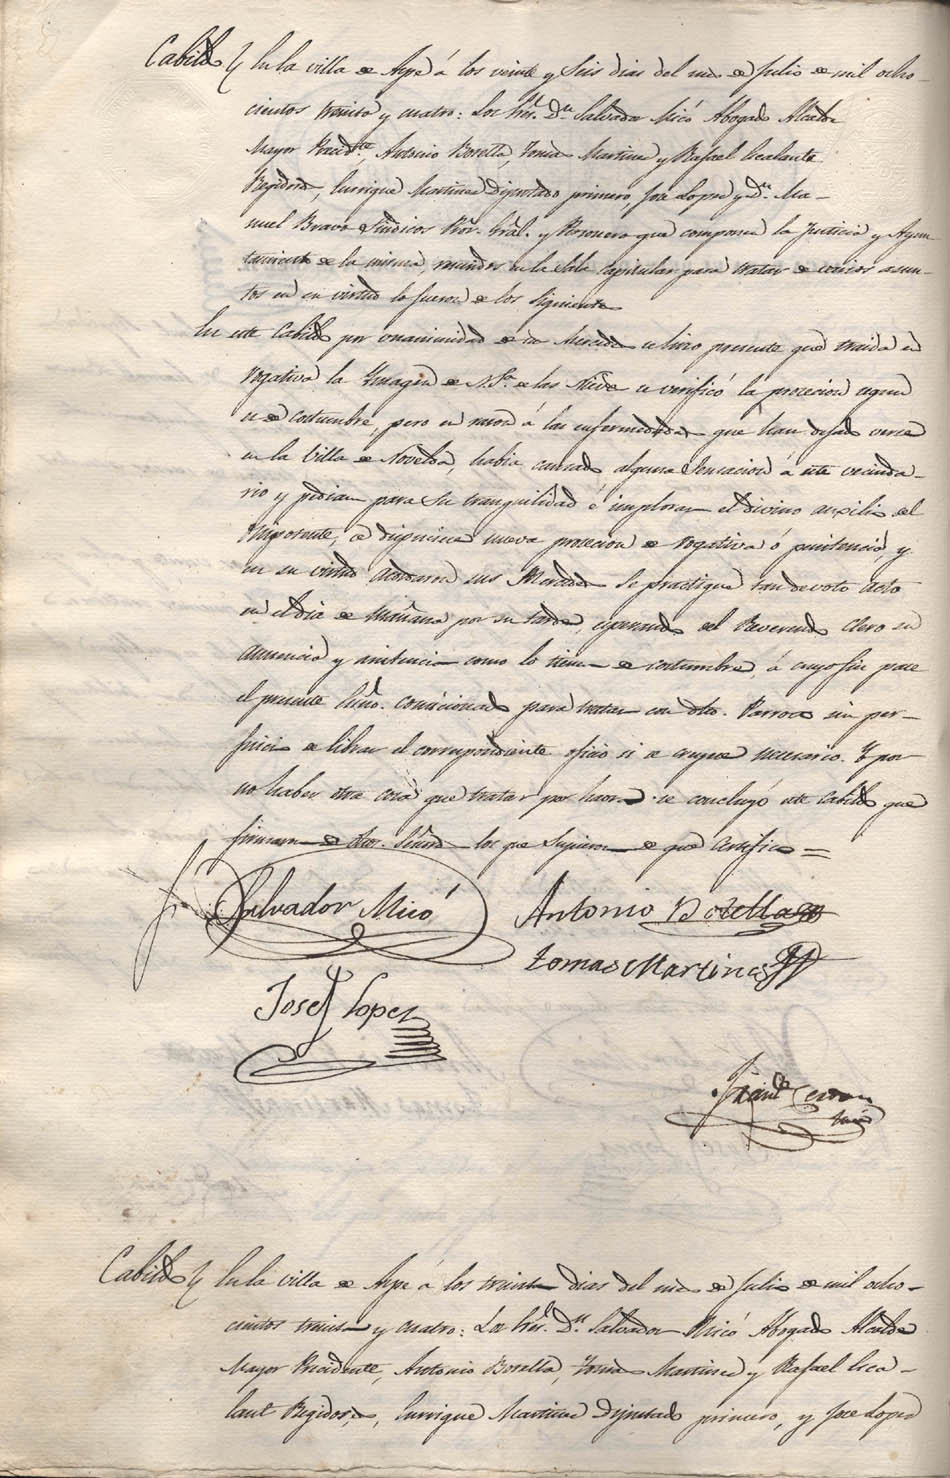 Cabildo En la villa de Aspe á los veinte y seis dias del mes de Julio de mil ocho-
cientos treinta y cuatro: Los Sres. Dn. Salvador Micó Abogado Alcalde
Mayor Presidte., Antonio Botella, Tomas Martinez y Rafael Alcalante
Regidores, Enrrique Martinez Diputado primero, José Lopez y Dn. Ma-
nuel Bravo Sindicos Pror. Gral. y Personero que componen la Justicia y Ayun-
tamiento de la misma, reunidos en la Sala Capitular para tratar de varios asun-
tos en su virtud lo fueron de los siguientes
En este Cabildo por unanimidad de sus Mercedes se hizo presente que traida en
rogativa la Imagen de N. Sa. de las Nieves se verificó la procesion segun
es de costumbre, pero en razon á las enfermedades que se han dejado verse
en la Villa de Novelda, habia causado alguna sensacion á este vecinda-
rio y pedian para su tranquilidad é implorar el divino auxilio del
Omnipotente, se dispusiese nueva procesion de rogativa ó penitencia y
en su virtud acordaron sus Mercedes se practique tan devoto acto
en el dia de mañana por su tarde, esperando del Reverendo Clero su
anuencia y asistencia como lo tiene de costumbre, á cuyo fin pase
el presente Srio. comisionado para tratar con dho. Parroco sin per-
juicio de librar el correspondiente oficio si se cree necesario. Y por
no haber otra cosa que tratar por haora se concluyó este Cabildo que
firmaron de dhos. Señores los que supieron de que certifico =
Salvador Micó Antonio Botella
tomas Martines
Josef Lopez
Cabildo En la villa de Aspe á los treinta dias del mes de Julio de mil ocho-
cientos treinta y cuatro: Los Sres. Dn. Salvador Micó Abogado Alcalde
Mayor Presidente, Antonio Botella, Tomas Martinez y Rafael
Regidores, Enrrique Martinez Diputado primero, y José Lopez